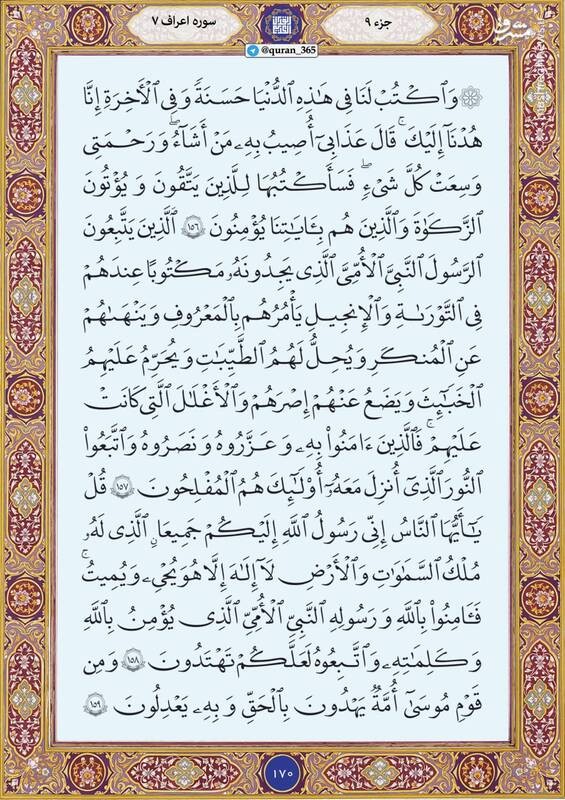 سوره اعراف ۷
جزء ۹
@quran_365
مشرق
۞ وَٱكۡتُبۡ لَنَا فِي هَٰذِهِ ٱلدُّنۡيَا حَسَنَةً وَفِي ٱلۡأٓخِرَةِ إِنَّا
هُدۡنَآ إِلَيۡكَۚ قَالَ عَذَابِيٓ أُصِيبُ بِهِۦ مَنۡ أَشَآءُۖ وَرَحۡمَتِي
وَسِعَتۡ كُلَّ شَيۡءٖۚ فَسَأَكۡتُبُهَا لِلَّذِينَ يَتَّقُونَ وَيُؤۡتُونَ
ٱلزَّكَوٰةَ وَٱلَّذِينَ هُم بِـَٔايَٰتِنَا يُؤۡمِنُونَ ١٥٦ ٱلَّذِينَ يَتَّبِعُونَ
ٱلرَّسُولَ ٱلنَّبِيَّ ٱلۡأُمِّيَّ ٱلَّذِي يَجِدُونَهُۥ مَكۡتُوبًا عِندَهُمۡ
فِي ٱلتَّوۡرَىٰةِ وَٱلۡإِنجِيلِ يَأۡمُرُهُم بِٱلۡمَعۡرُوفِ وَيَنۡهَىٰهُمۡ
عَنِ ٱلۡمُنكَرِ وَيُحِلُّ لَهُمُ ٱلطَّيِّبَٰتِ وَيُحَرِّمُ عَلَيۡهِمُ
ٱلۡخَبَٰٓئِثَ وَيَضَعُ عَنۡهُمۡ إِصۡرَهُمۡ وَٱلۡأَغۡلَٰلَ ٱلَّتِي كَانَتۡ
عَلَيۡهِمۡۚ فَٱلَّذِينَ ءَامَنُواْ بِهِۦ وَعَزَّرُوهُ وَنَصَرُوهُ وَٱتَّبَعُواْ
ٱلنُّورَ ٱلَّذِيٓ أُنزِلَ مَعَهُۥٓ أُوْلَٰٓئِكَ هُمُ ٱلۡمُفۡلِحُونَ ١٥٧ قُلۡ
يَٰٓأَيُّهَا ٱلنَّاسُ إِنِّي رَسُولُ ٱللَّهِ إِلَيۡكُمۡ جَمِيعًا ٱلَّذِي لَهُۥ
مُلۡكُ ٱلسَّمَٰوَٰتِ وَٱلۡأَرۡضِۖ لَآ إِلَٰهَ إِلَّا هُوَ يُحۡيِۦ وَيُمِيتُۖ
فَـَٔامِنُواْ بِٱللَّهِ وَرَسُولِهِ ٱلنَّبِيِّ ٱلۡأُمِّيِّ ٱلَّذِي يُؤۡمِنُ بِٱللَّهِ
وَكَلِمَٰتِهِۦ وَٱتَّبِعُوهُ لَعَلَّكُمۡ تَهۡتَدُونَ ١٥٨ وَمِن
قَوۡمِ مُوسَىٰٓ أُمَّةٌ يَهۡدُونَ بِٱلۡحَقِّ وَبِهِۦ يَعۡدِلُونَ ١٥٩
١٧٠